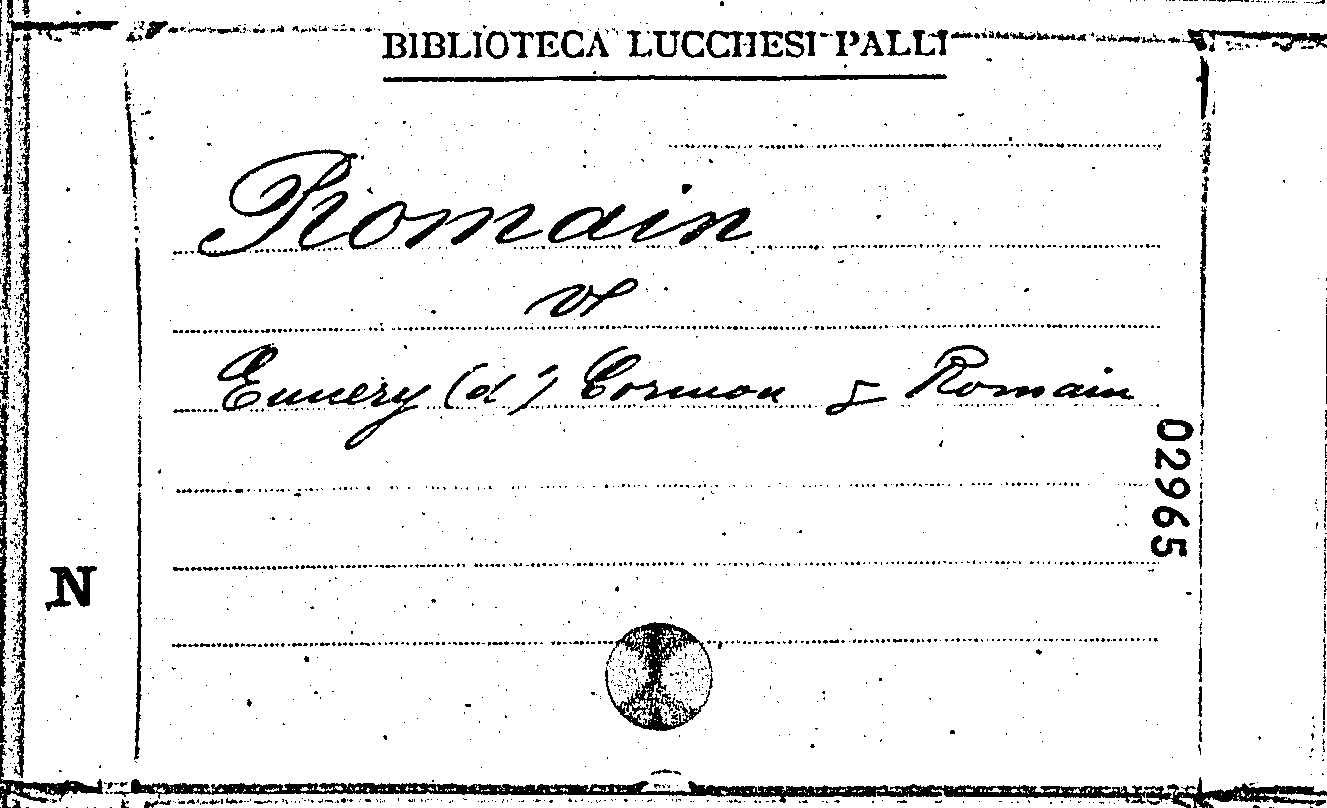 BIBLIOTECA LUCCHESI PALLI
Romain
vs
Ennery (d') Cormon & Romain
02965
N